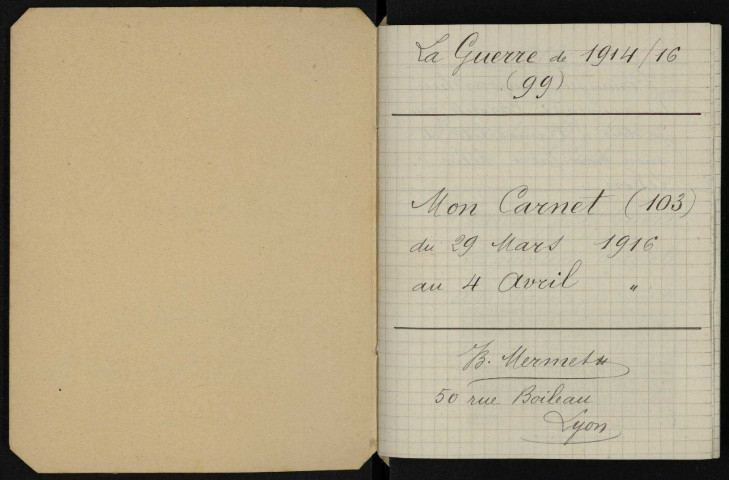 La Guerre de 1914/16
(99)
Mon Carnet (103)
du 29 Mars 1916
au 4 Avril "
B. Mermet
50 rue Boileau
Lyon